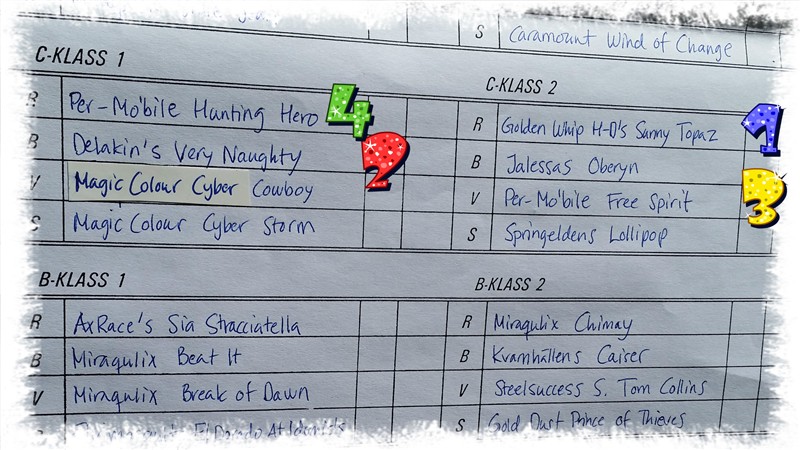 S Caramount Wind of Change
C-KLASS 1
R Per-Mo'bile Hunting Hero 4
B Delakin's Very Naughty 2
V Magic Colour Cyber Cowboy
S Magic Colour Cyber Storm
C-KLASS 2
R Golden Whip H-O's Sunny Topaz 1
B Jalessas Oberyn
V Per-Mo'bile Free Spirit 3
S Springeldens Lollipop
B-KLASS 1
R AxRace's Sia Stracciatella
B Miraqulix Beat It
V Miraqulix Break of Dawn
El Dorado
B-KLASS 2
R Miraqulix Chimay
B Kvarnhällens Caiser
V Steelsuccess S. Tom Collins
S Gold Dust Prince of Thieves